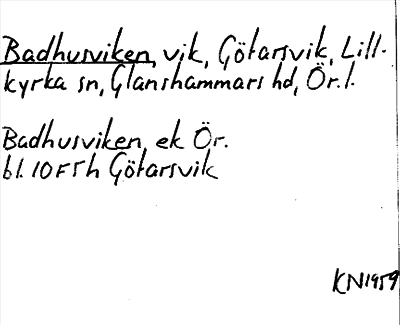 Badhusviken, vik, Götarsvik, Lill-
kyrka sn, Glanshammars hd, Ör. l.
Badhusviken, ek Ör.
bl. 10F5h Götarsvik
KN1959